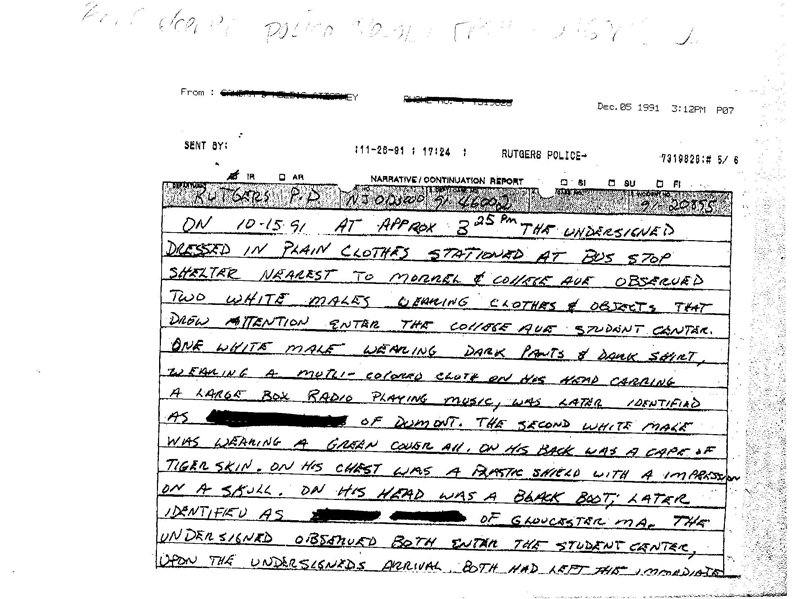 From : ATTORNEY PHONE NO. : 7319828
Dec.05 1991 3:12PM P07
SENT BY: :11-26-91 ; 17:24 ; RUTGERS POLICE→ 7319828;# 5/ 6
IR AR NARRATIVE/CONTINUATION REPORT SI SU FI
RUTGERS P.D 91-46002 91-20895
ON 10-15-91 AT APPROX 3 25 PM THE UNDERSIGNED
DRESSED IN PLAIN CLOTHES STATIONED AT BUS STOP
SHELTER NEAREST TO MORREL & COLLEGE AVE OBSERVED
TWO WHITE MALES WEARING CLOTHES & OBJECTS THAT
DREW ATTENTION ENTER THE COLLEGE AVE STUDENT CENTER.
ONE WHITE MALE WEARING DARK PANTS & DARK SHIRT,
WEARING A MUTLI-COLORED CLOTH ON HIS HEAD CARRING
A LARGE BOX RADIO PLAYING MUSIC, WAS LATER IDENTIFIED
AS OF DUMONT. THE SECOND WHITE MALE
WAS WEARING A GREEN COVER ALL. ON HIS BACK WAS A CAPE OF
TIGER SKIN. ON HIS CHEST WAS A PLASTIC SHIELD WITH A IMPRESSION
ON A SKULL. ON HIS HEAD WAS A BLACK BOOT; LATER
IDENTIFIED AS OF GLOUCESTER MA. THE
UNDERSIGNED OBSERVED BOTH ENTER THE STUDENT CENTER,
UPON THE UNDERSIGNEDS ARRIVAL. BOTH HAD LEFT THE IMMEDIATE